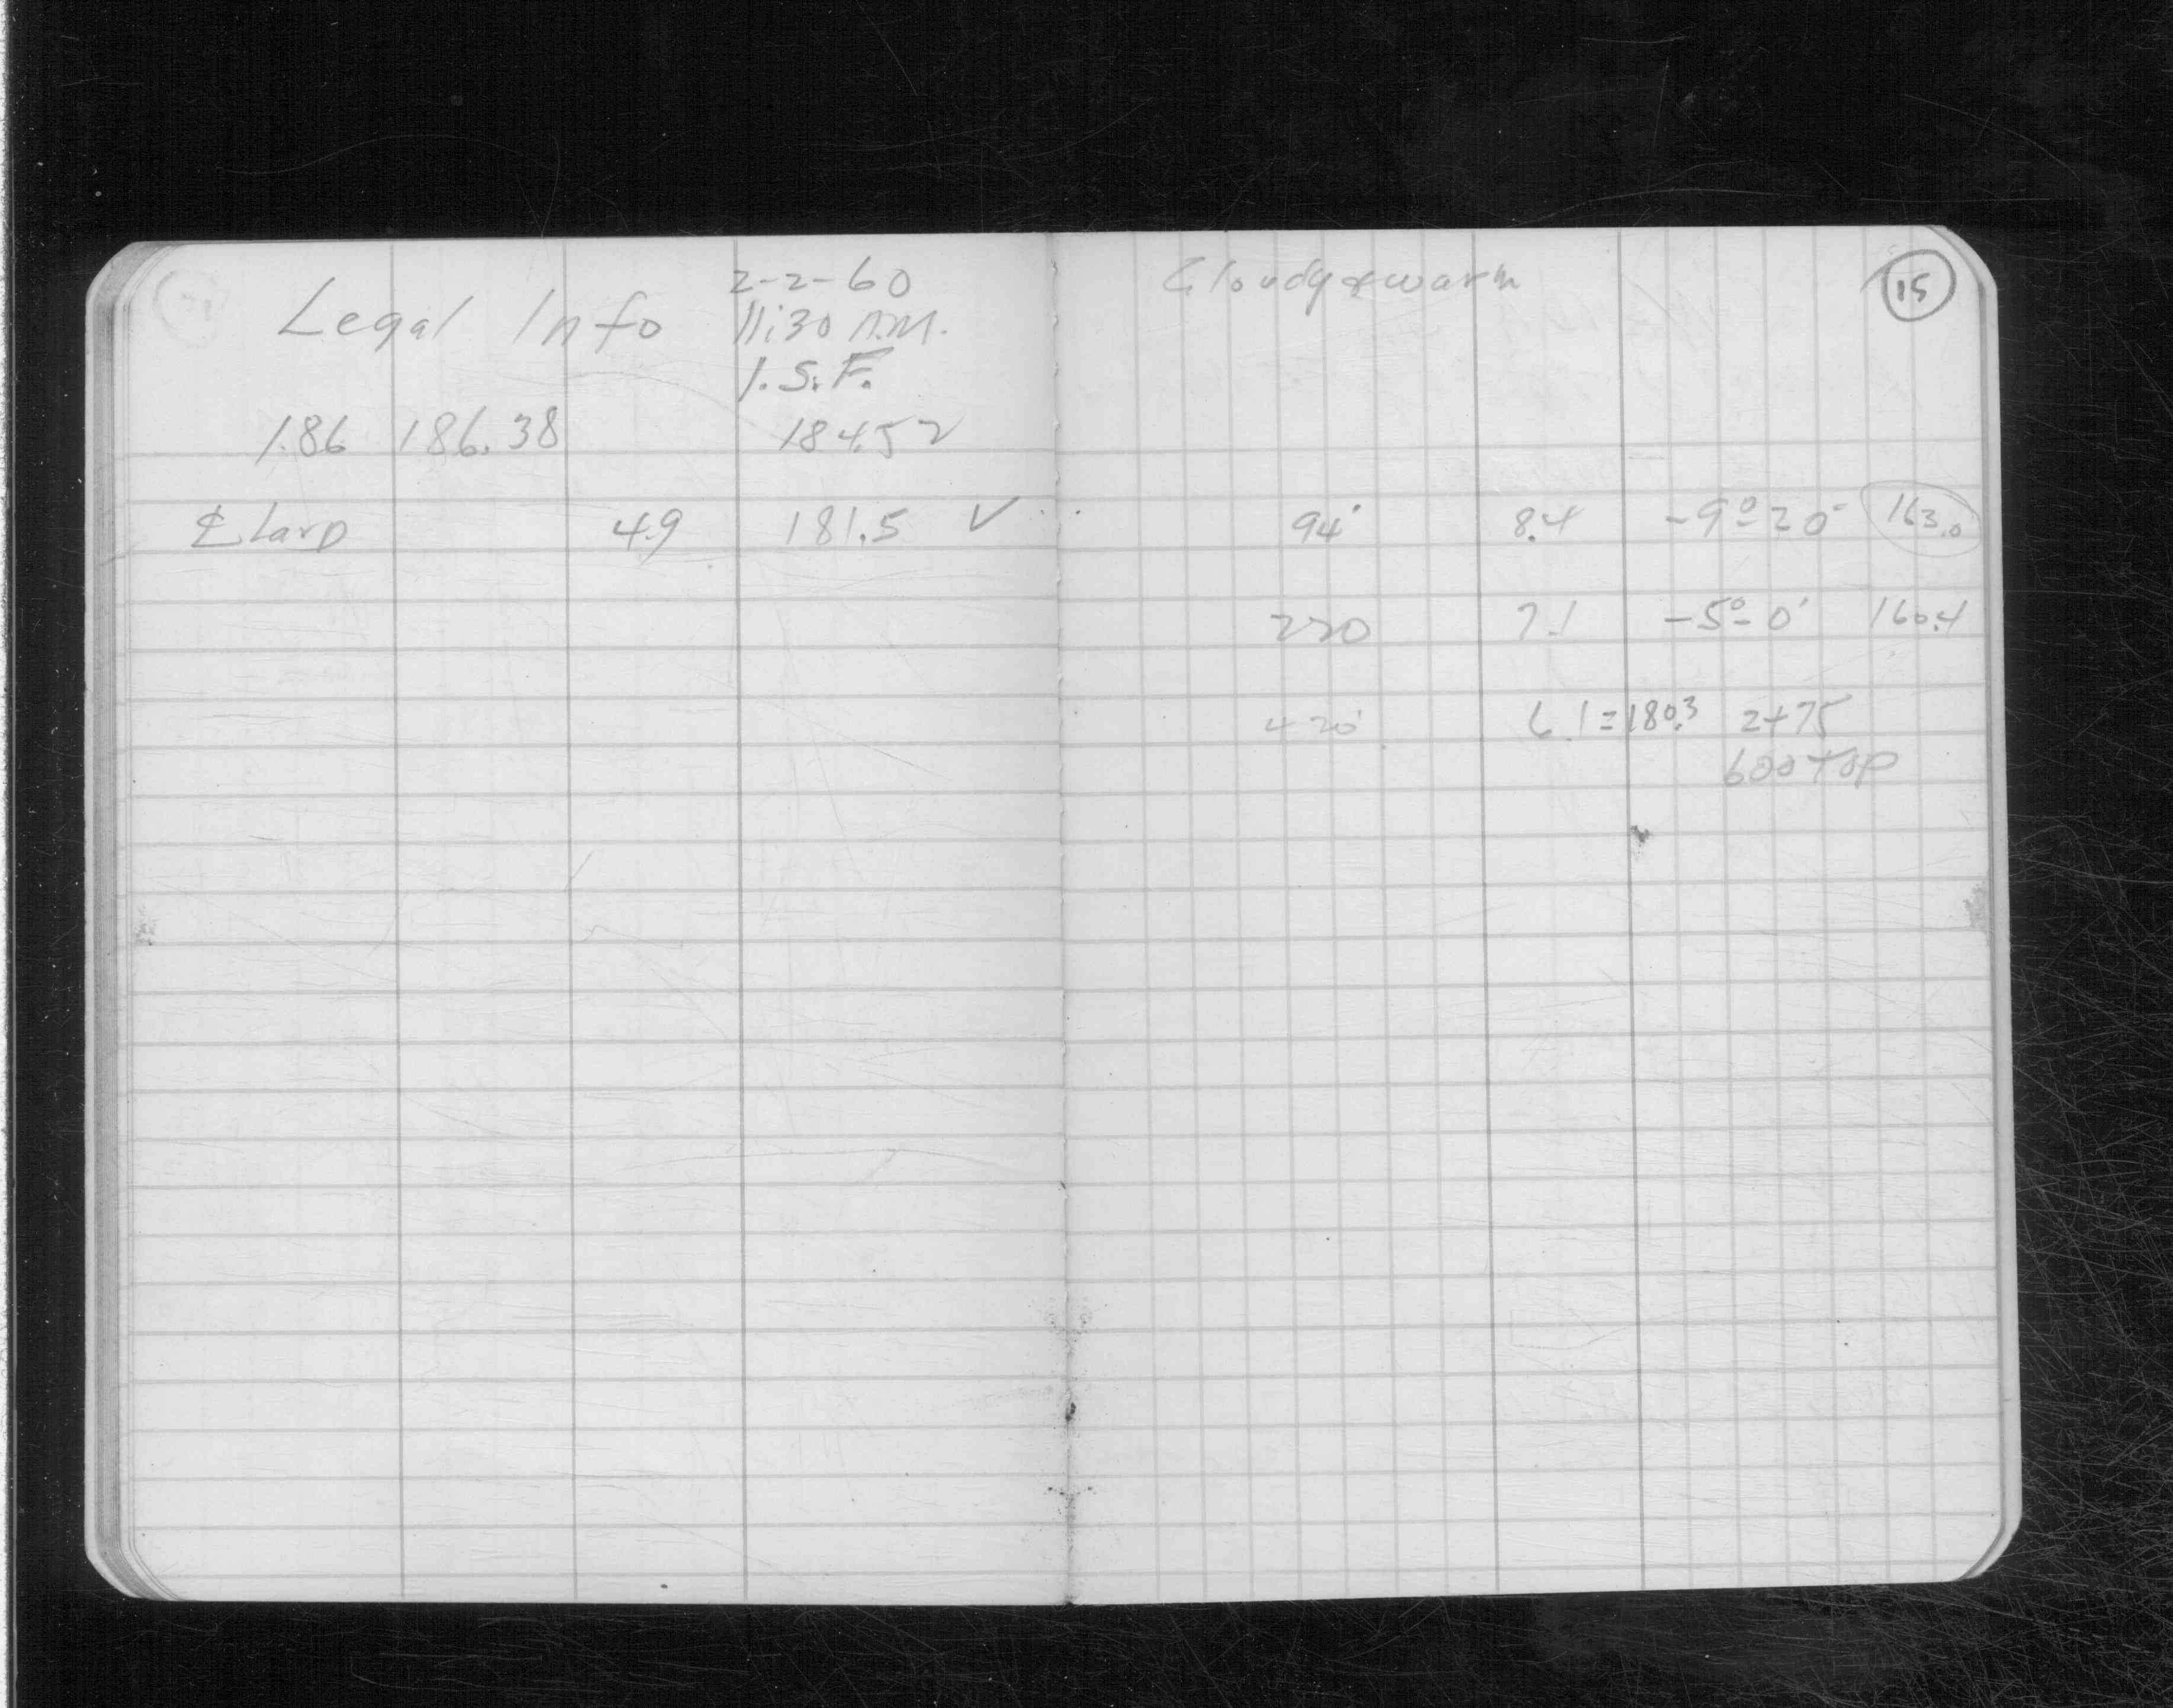 Legal Info
2-2-60
11:30 A.M.
I.S.F.
1.86 186.38 184.52
℄ 4.9 181.5 ✓
Cloudy & warm
15
94' 8.4 -9°-20' 163.0
220 7.1 -5°-0' 160.4
420' 6.1=180.3 2+75
600 top